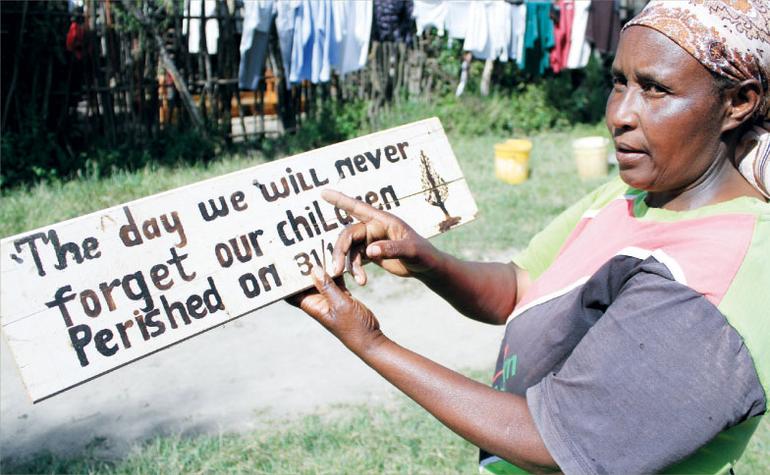 The day we will never
forget our children
Perished on 31/1